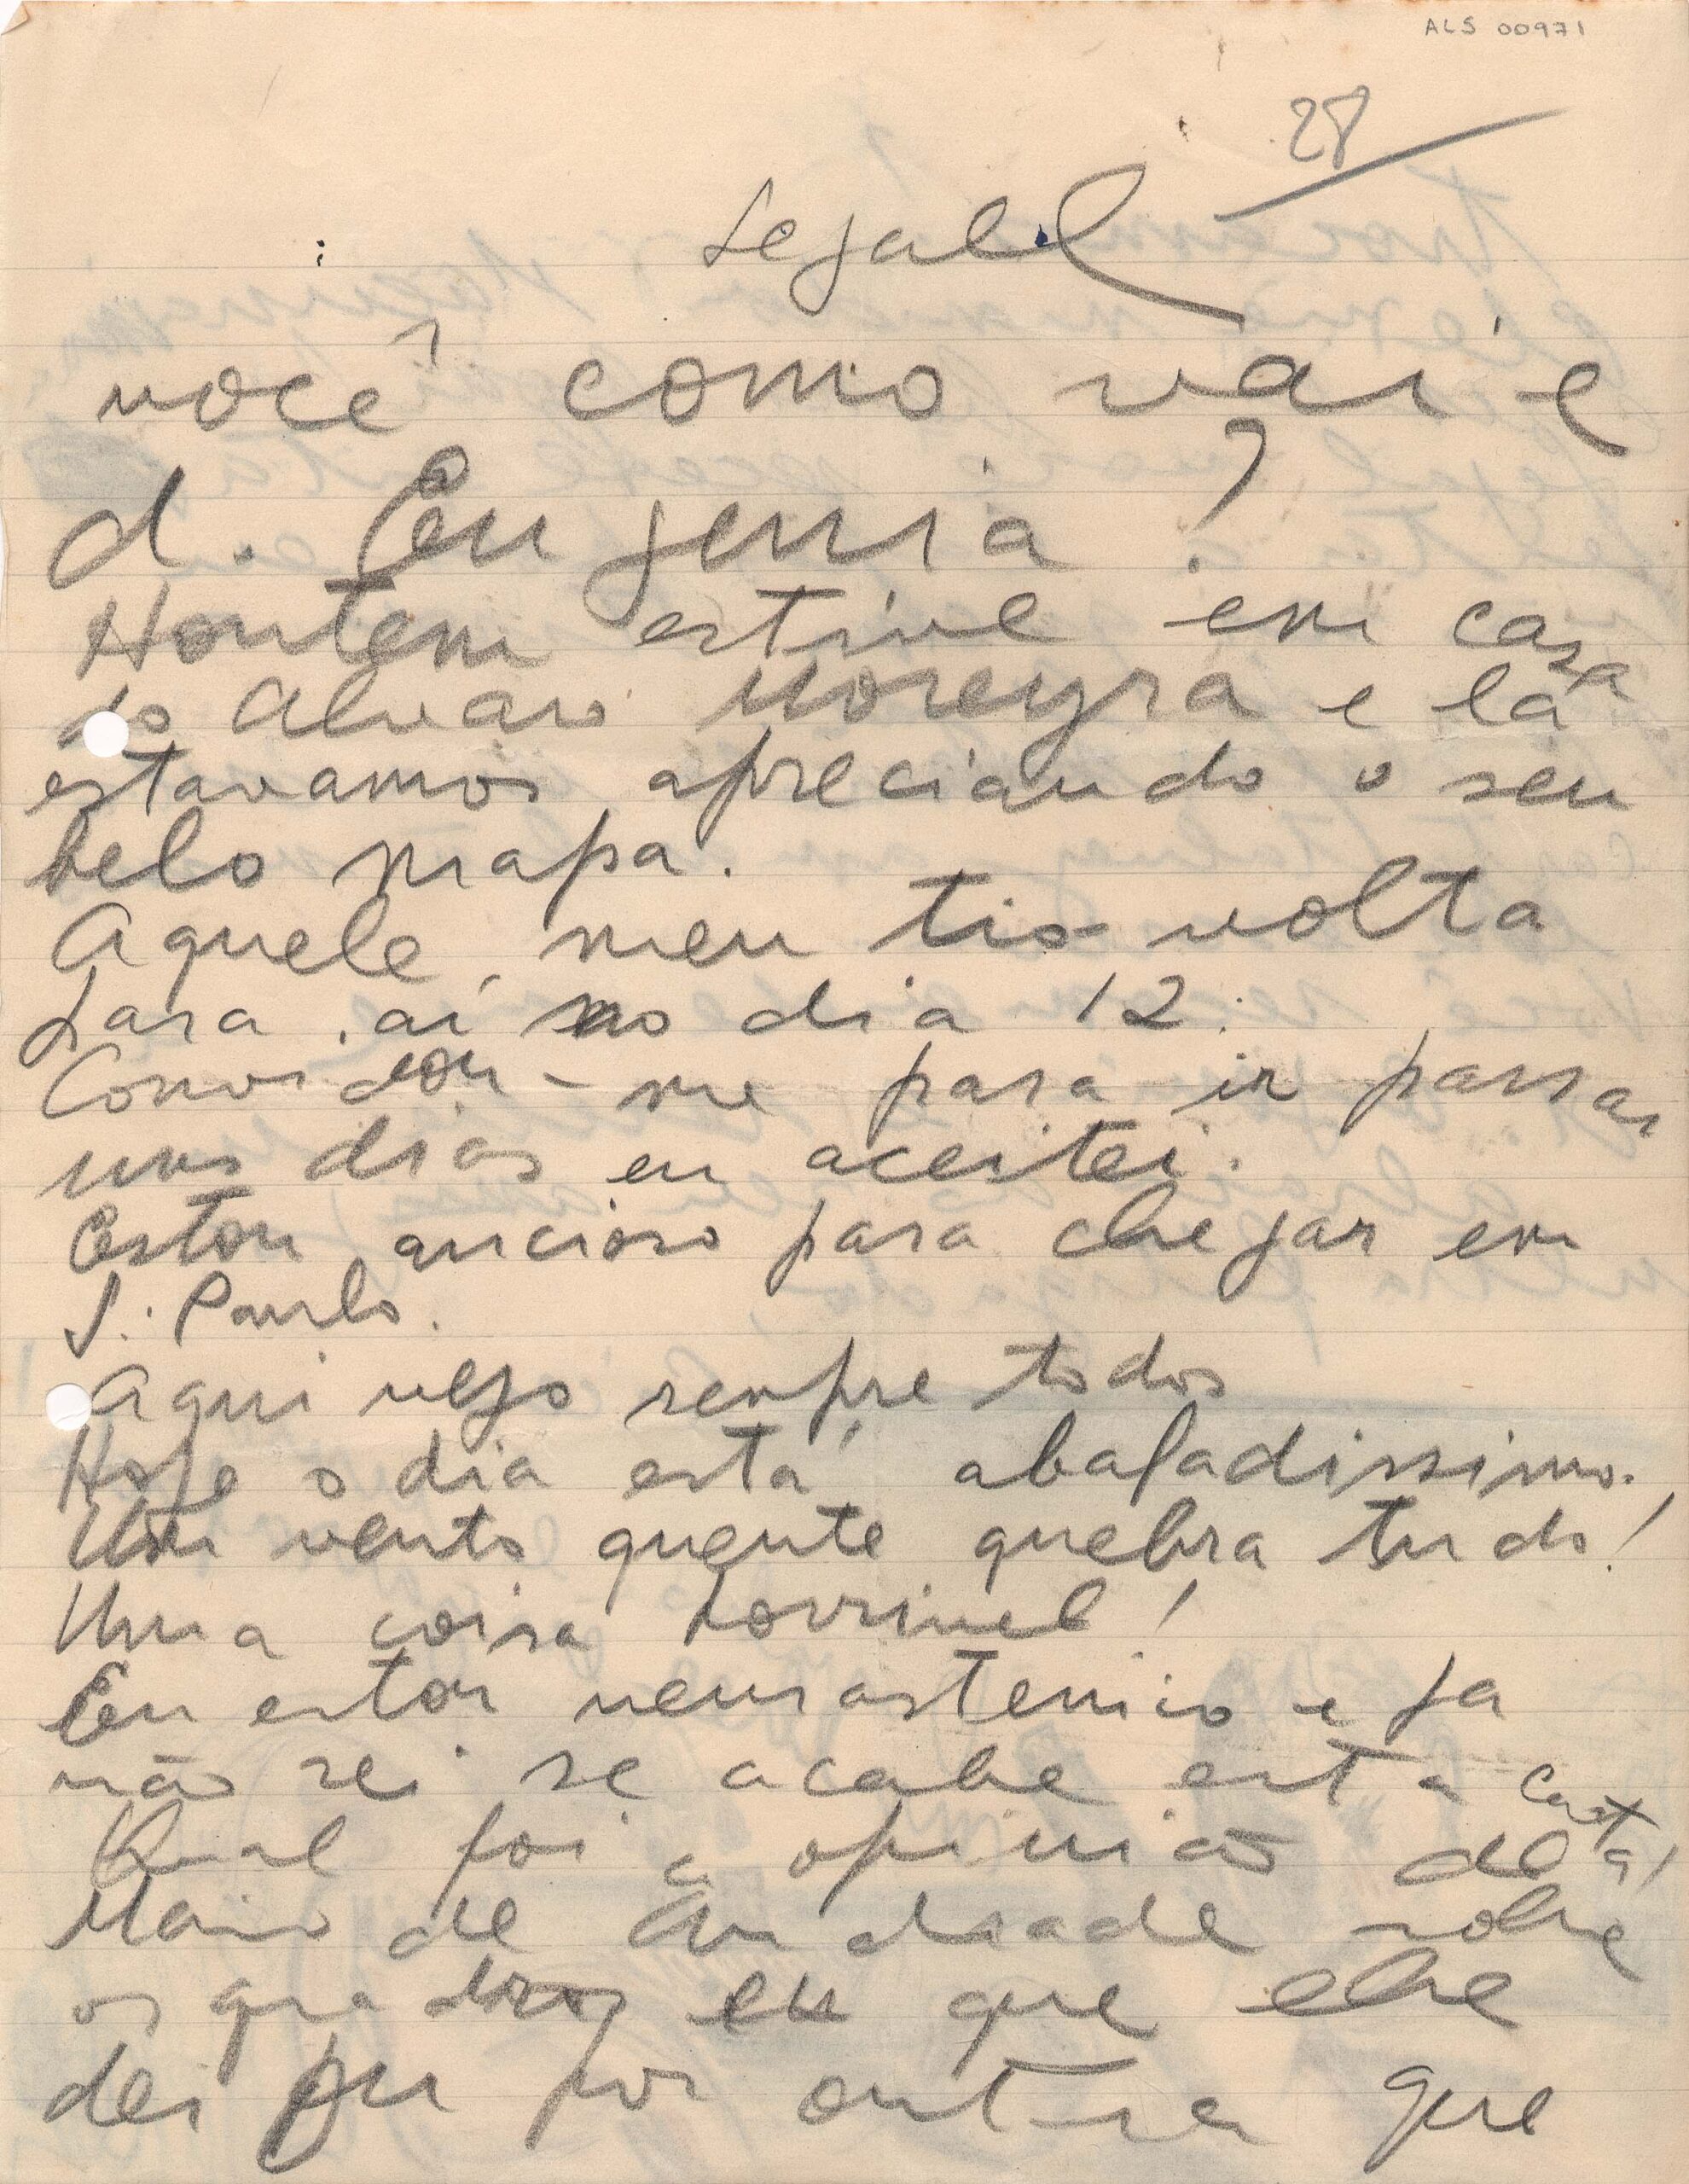 ALS 00971
28
Segall
você como vai e
d. Eugenia?
Hontem estive em casa
do Alvaro Moreyra e lá
estavamos apreciando o seu
belo mapa.
Aquele meu tio volta
para aí no dia 12.
Convidou-me para ir passar
uns dias eu aceitei.
Estou ancioso para chegar em
S. Paulo.
Aqui vejo sempre todos
Hoje o dia está abafadissimo.
Um vento quente quebra tudo!
Uma coisa horrivel!
Eu estou neurastenico e ja
não sei se acabe esta carta!
Qual foi a opinião de
Mario de Andrade sobre
os quadros que ele
dei por outra que